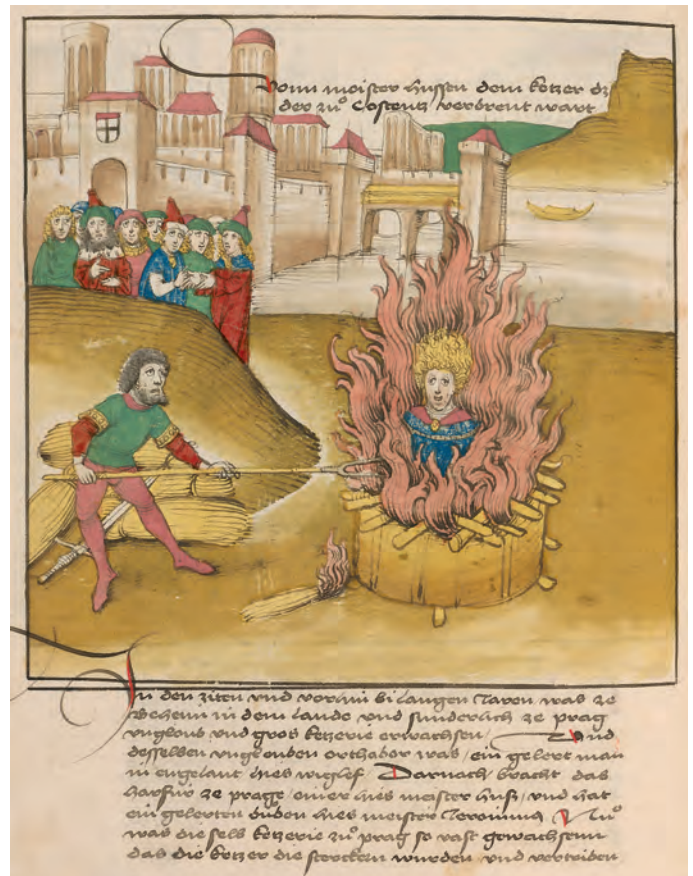 Vonn meister hussen dem ketzer dz
der zuͦ Costentz verbrent wart
In den ziten vnd vorhin bi langen Jaren was ze
Behemm in dem lande vnd sunderlich ze prag
vngloub vnd gros ketzerie erwachsen / Vnd
desselben vnglouben orthaber was / ein gelert man
in engelant hies wiglef / Darnach bracht das
harfür ze prage / einer hies meister Huß / vnd hat
ein gelerten buͦben hies meister Jeronimus Nuͦ
was die selb ketzerie zuͦ prag so vast gewachsenn
das die ketzer die sterckern wurden vnd vertriben